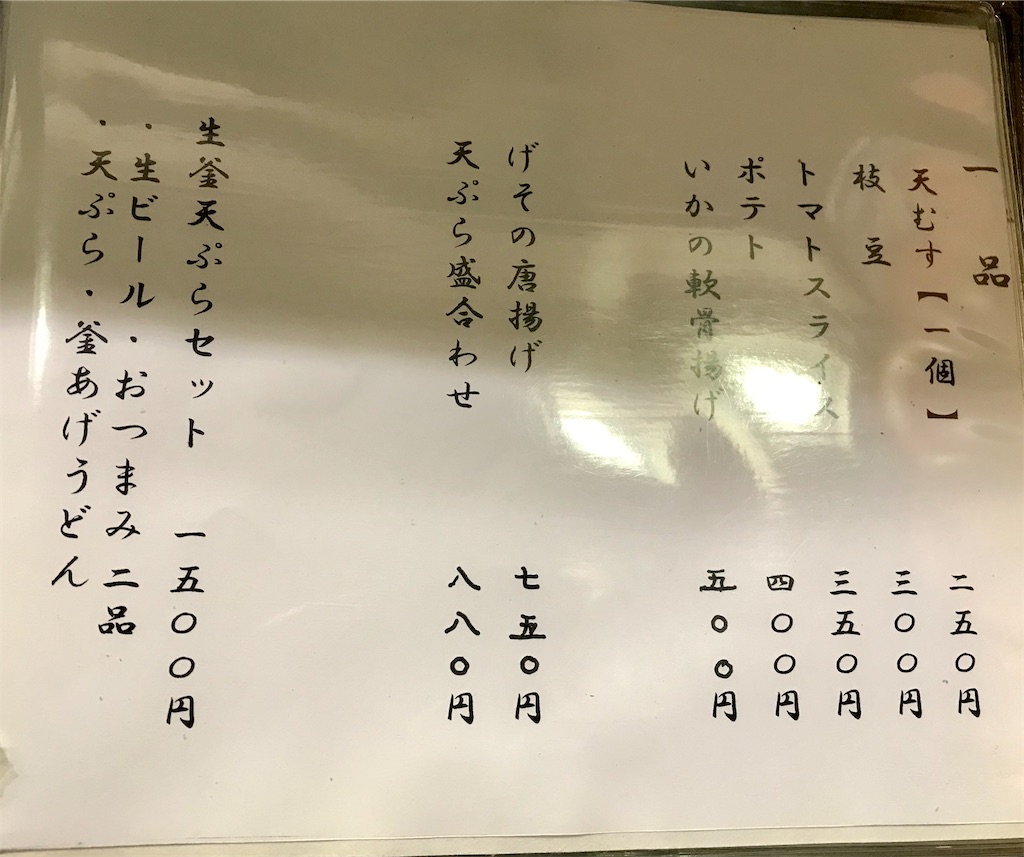 一品
天むす【一個】 二五〇円
枝豆 三〇〇円
トマトスライス 三五〇円
ポテト 四〇〇円
いかの軟骨揚げ 五〇〇円
げその唐揚げ 七五〇円
天ぷら盛合わせ 八八〇円
生釜天ぷらセット 一五〇〇円
・生ビール・おつまみ二品
・天ぷら・釜あげうどん